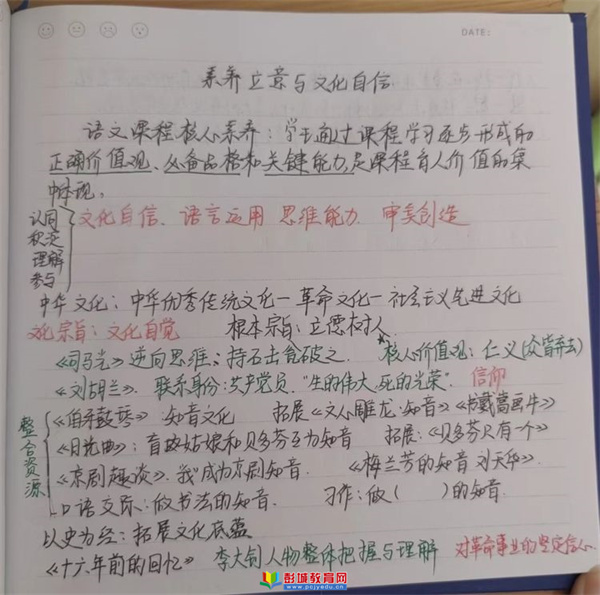 DATE:
素养立意与文化自信
语文课程核心素养：学生通过课程学习逐步形成的
正确价值观、必备品格和关键能力,是课程育人价值的集
中体现。
认同
积淀
理解
参与
文化自信、语言运用 思维能力、审美创造
中华文化：中华优秀传统文化－革命文化－社会主义先进文化
文化宗旨：文化自觉 根本宗旨：立德树人
《司马光》逆向思维：持石击瓮破之. 核心价值观：仁义(众皆弃去)
《刘胡兰》. 联系身份:共产党员. "生的伟大,死的光荣". 信仰
整合资源
《伯牙鼓琴》 知音文化 拓展《文心雕龙·知音》《书戴嵩画牛》
《月光曲》：盲眼姑娘和贝多芬互为知音 拓展：《贝多芬只有一个》
《京剧趣谈》. "我"成为京剧知音. 《梅兰芳的知音 刘天华》.
口语交际：做书法的知音. 习作：做( )的知音.
以史为经：拓展文化底蕴
《十六年前的回忆》 李大钊人物整体把握与理解 对革命事业的坚定信心.
彭城教育网
www.pcjyedu.cn